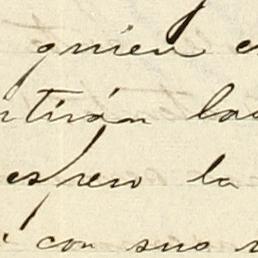 quien e
ntirán la
espero la
con sus